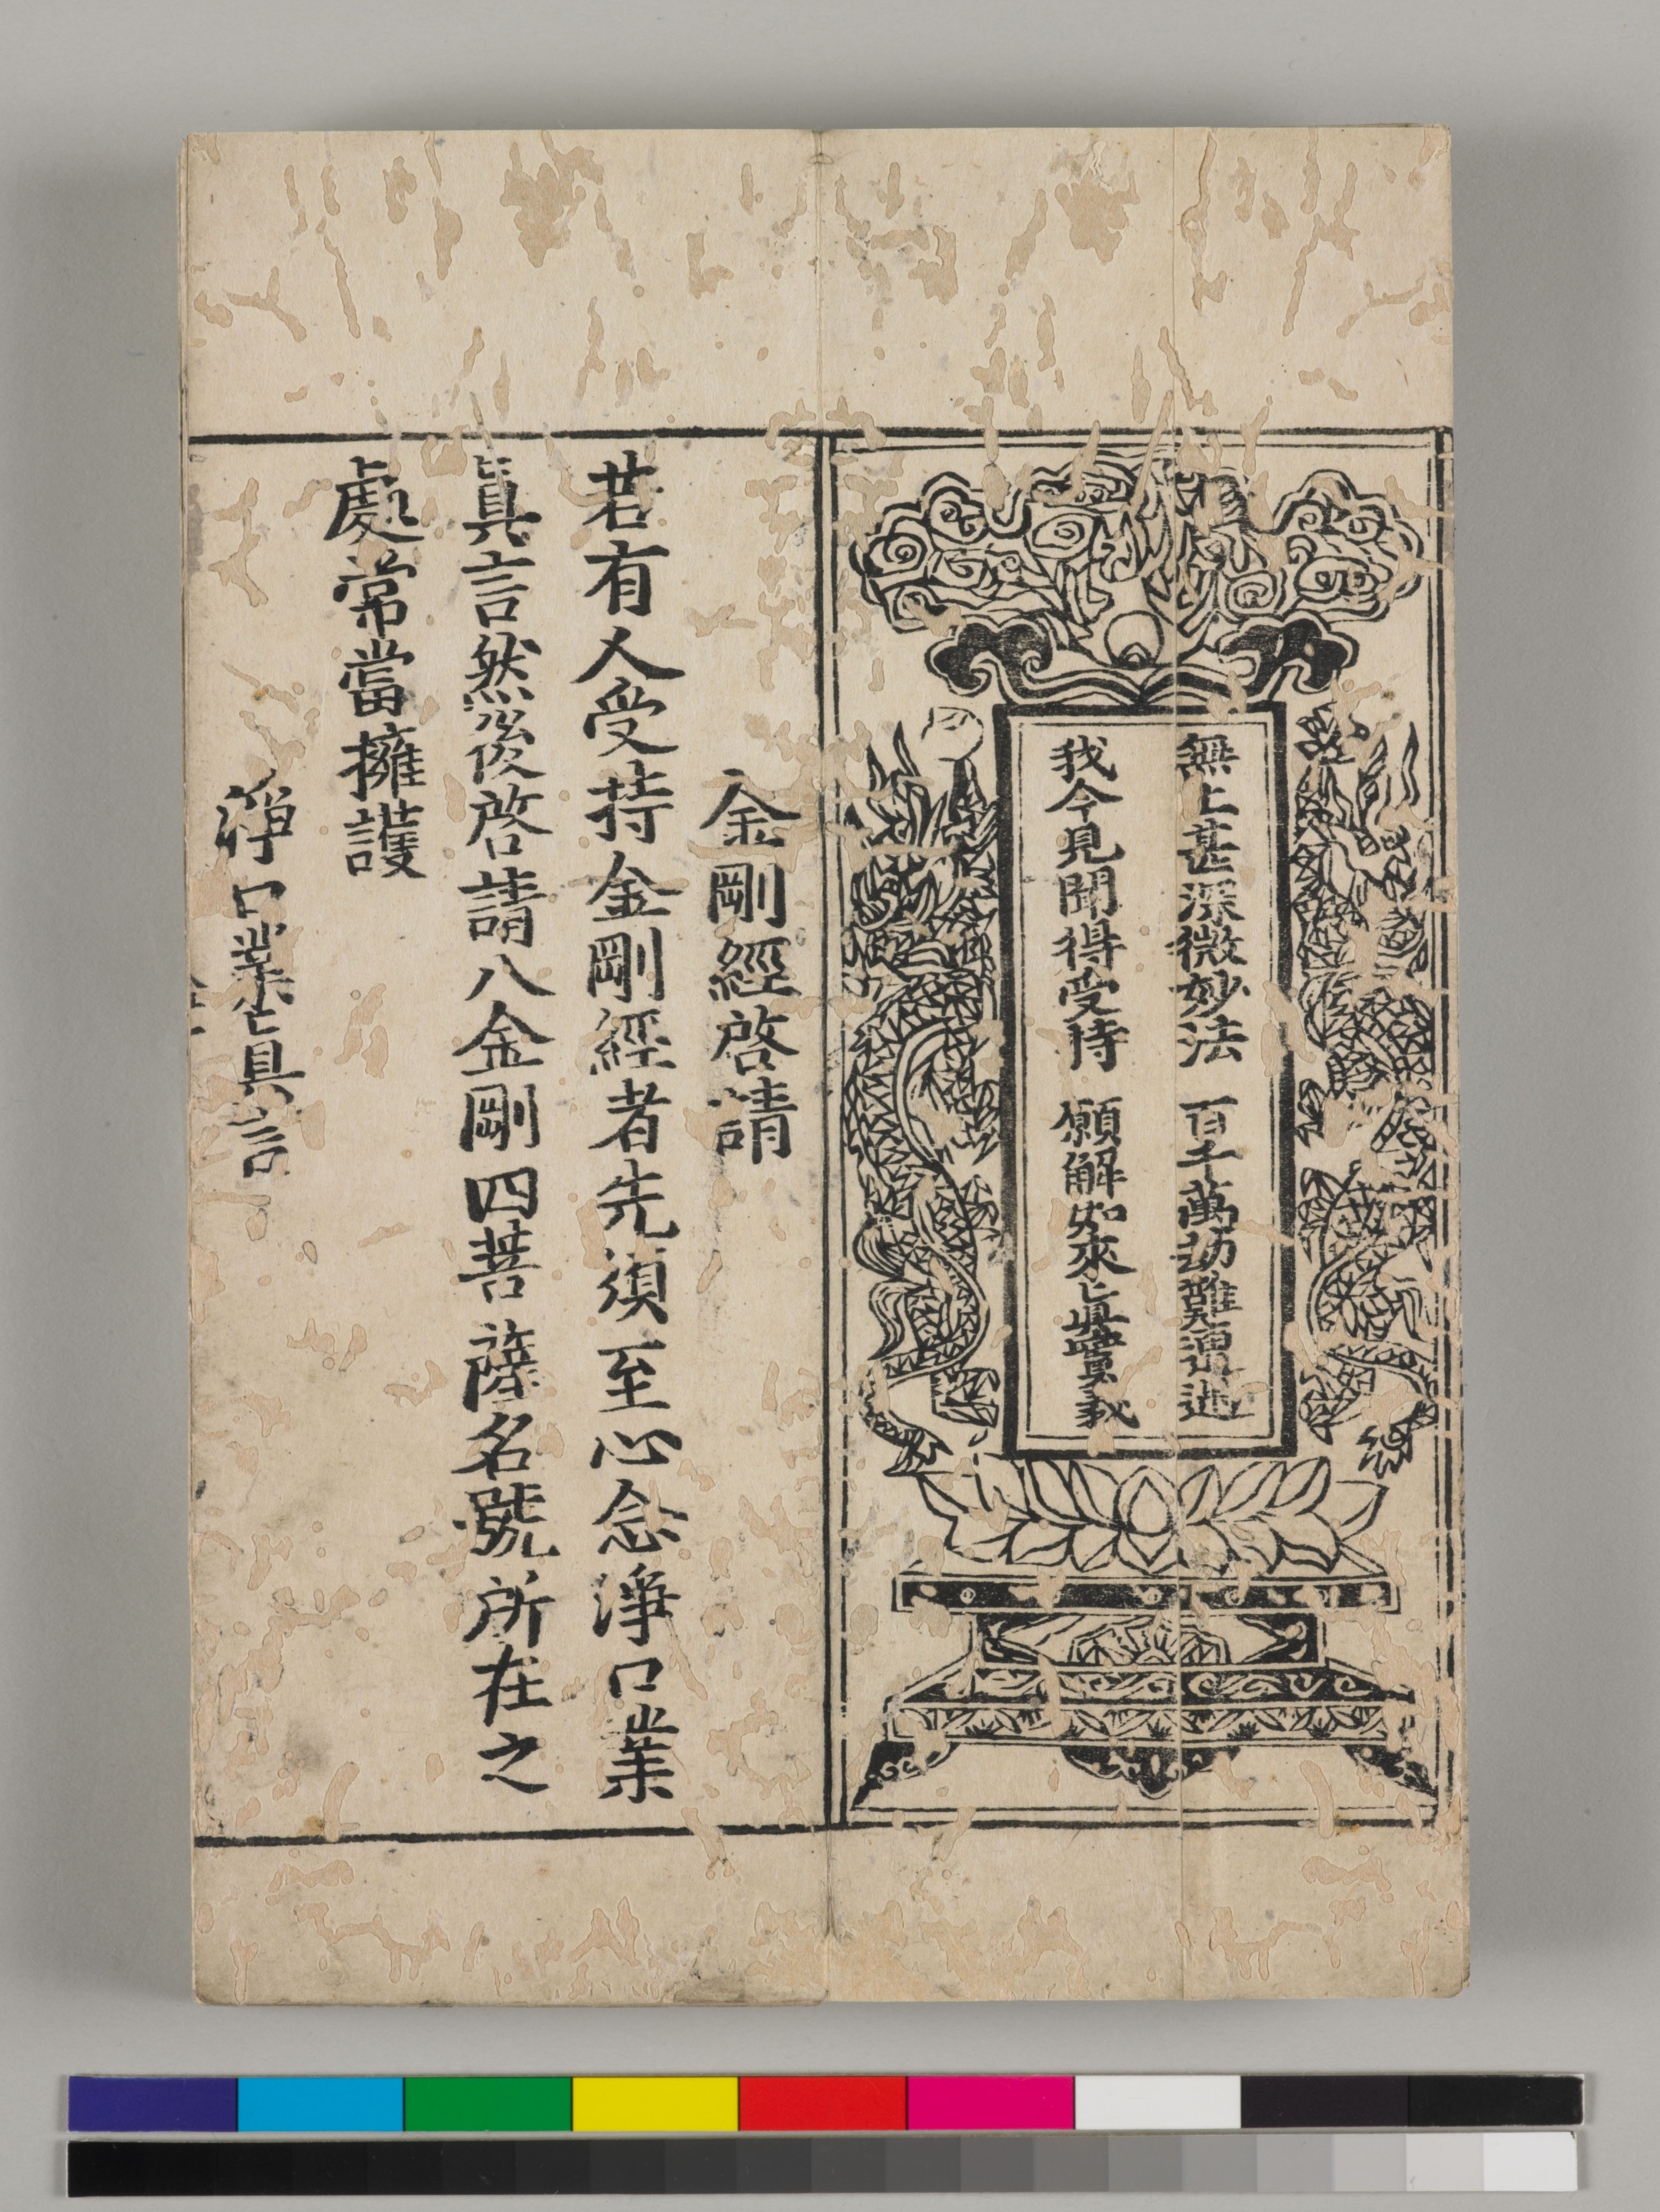 無上甚深微妙法 百千萬劫難遭遇
我今見聞得受持 願解如來眞實義
金剛經啓請
若有人受持金剛經者先須至心念淨口業
眞言然後啓請八金剛四菩薩名號所在之
處常當擁護
淨口業眞言